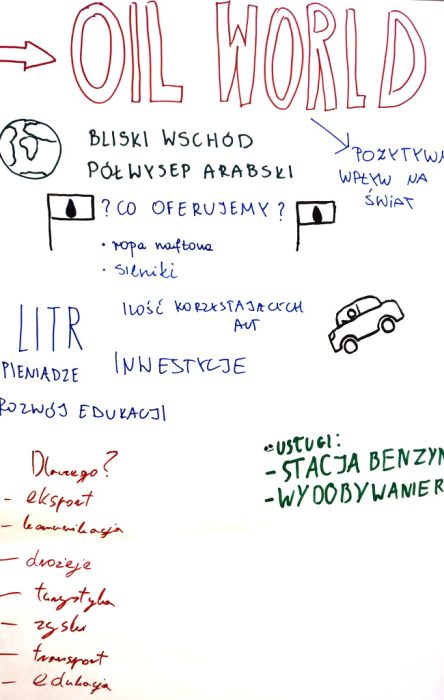 OIL WORLD
BLISKI WSCHÓD
PÓŁWYSEP ARABSKI
POZYTYWN
WPŁYW NA
ŚWIAT
? CO OFERUJEMY ?
• ropa naftowa
• silniki
ILOŚĆ KORZYSTAJĄCYCH
AUT
LITR
PIENIĄDZE
INWESTYCJE
ROZWÓJ EDUKACJI
• USŁUGI:
- STACJA BENZYN
- WYDOBYWANIE R
Dlaczego?
- eksport
- komunikacja
- drożeje
- turystyka
- zyski
- transport
- edukacja